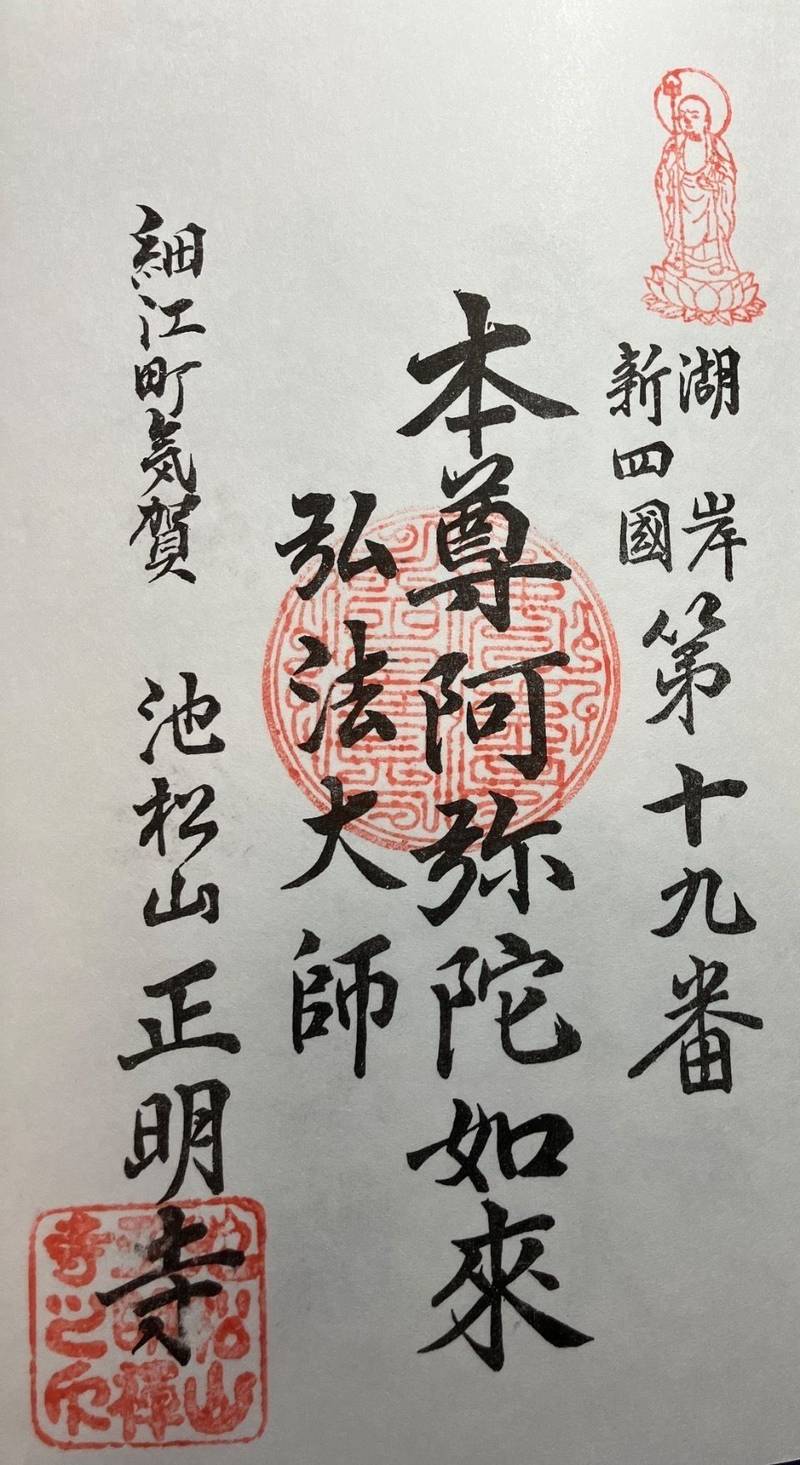 湖岸
新四國
第十九番
本尊阿弥陀如來
弘法大師
細江町気賀 池松山正明寺